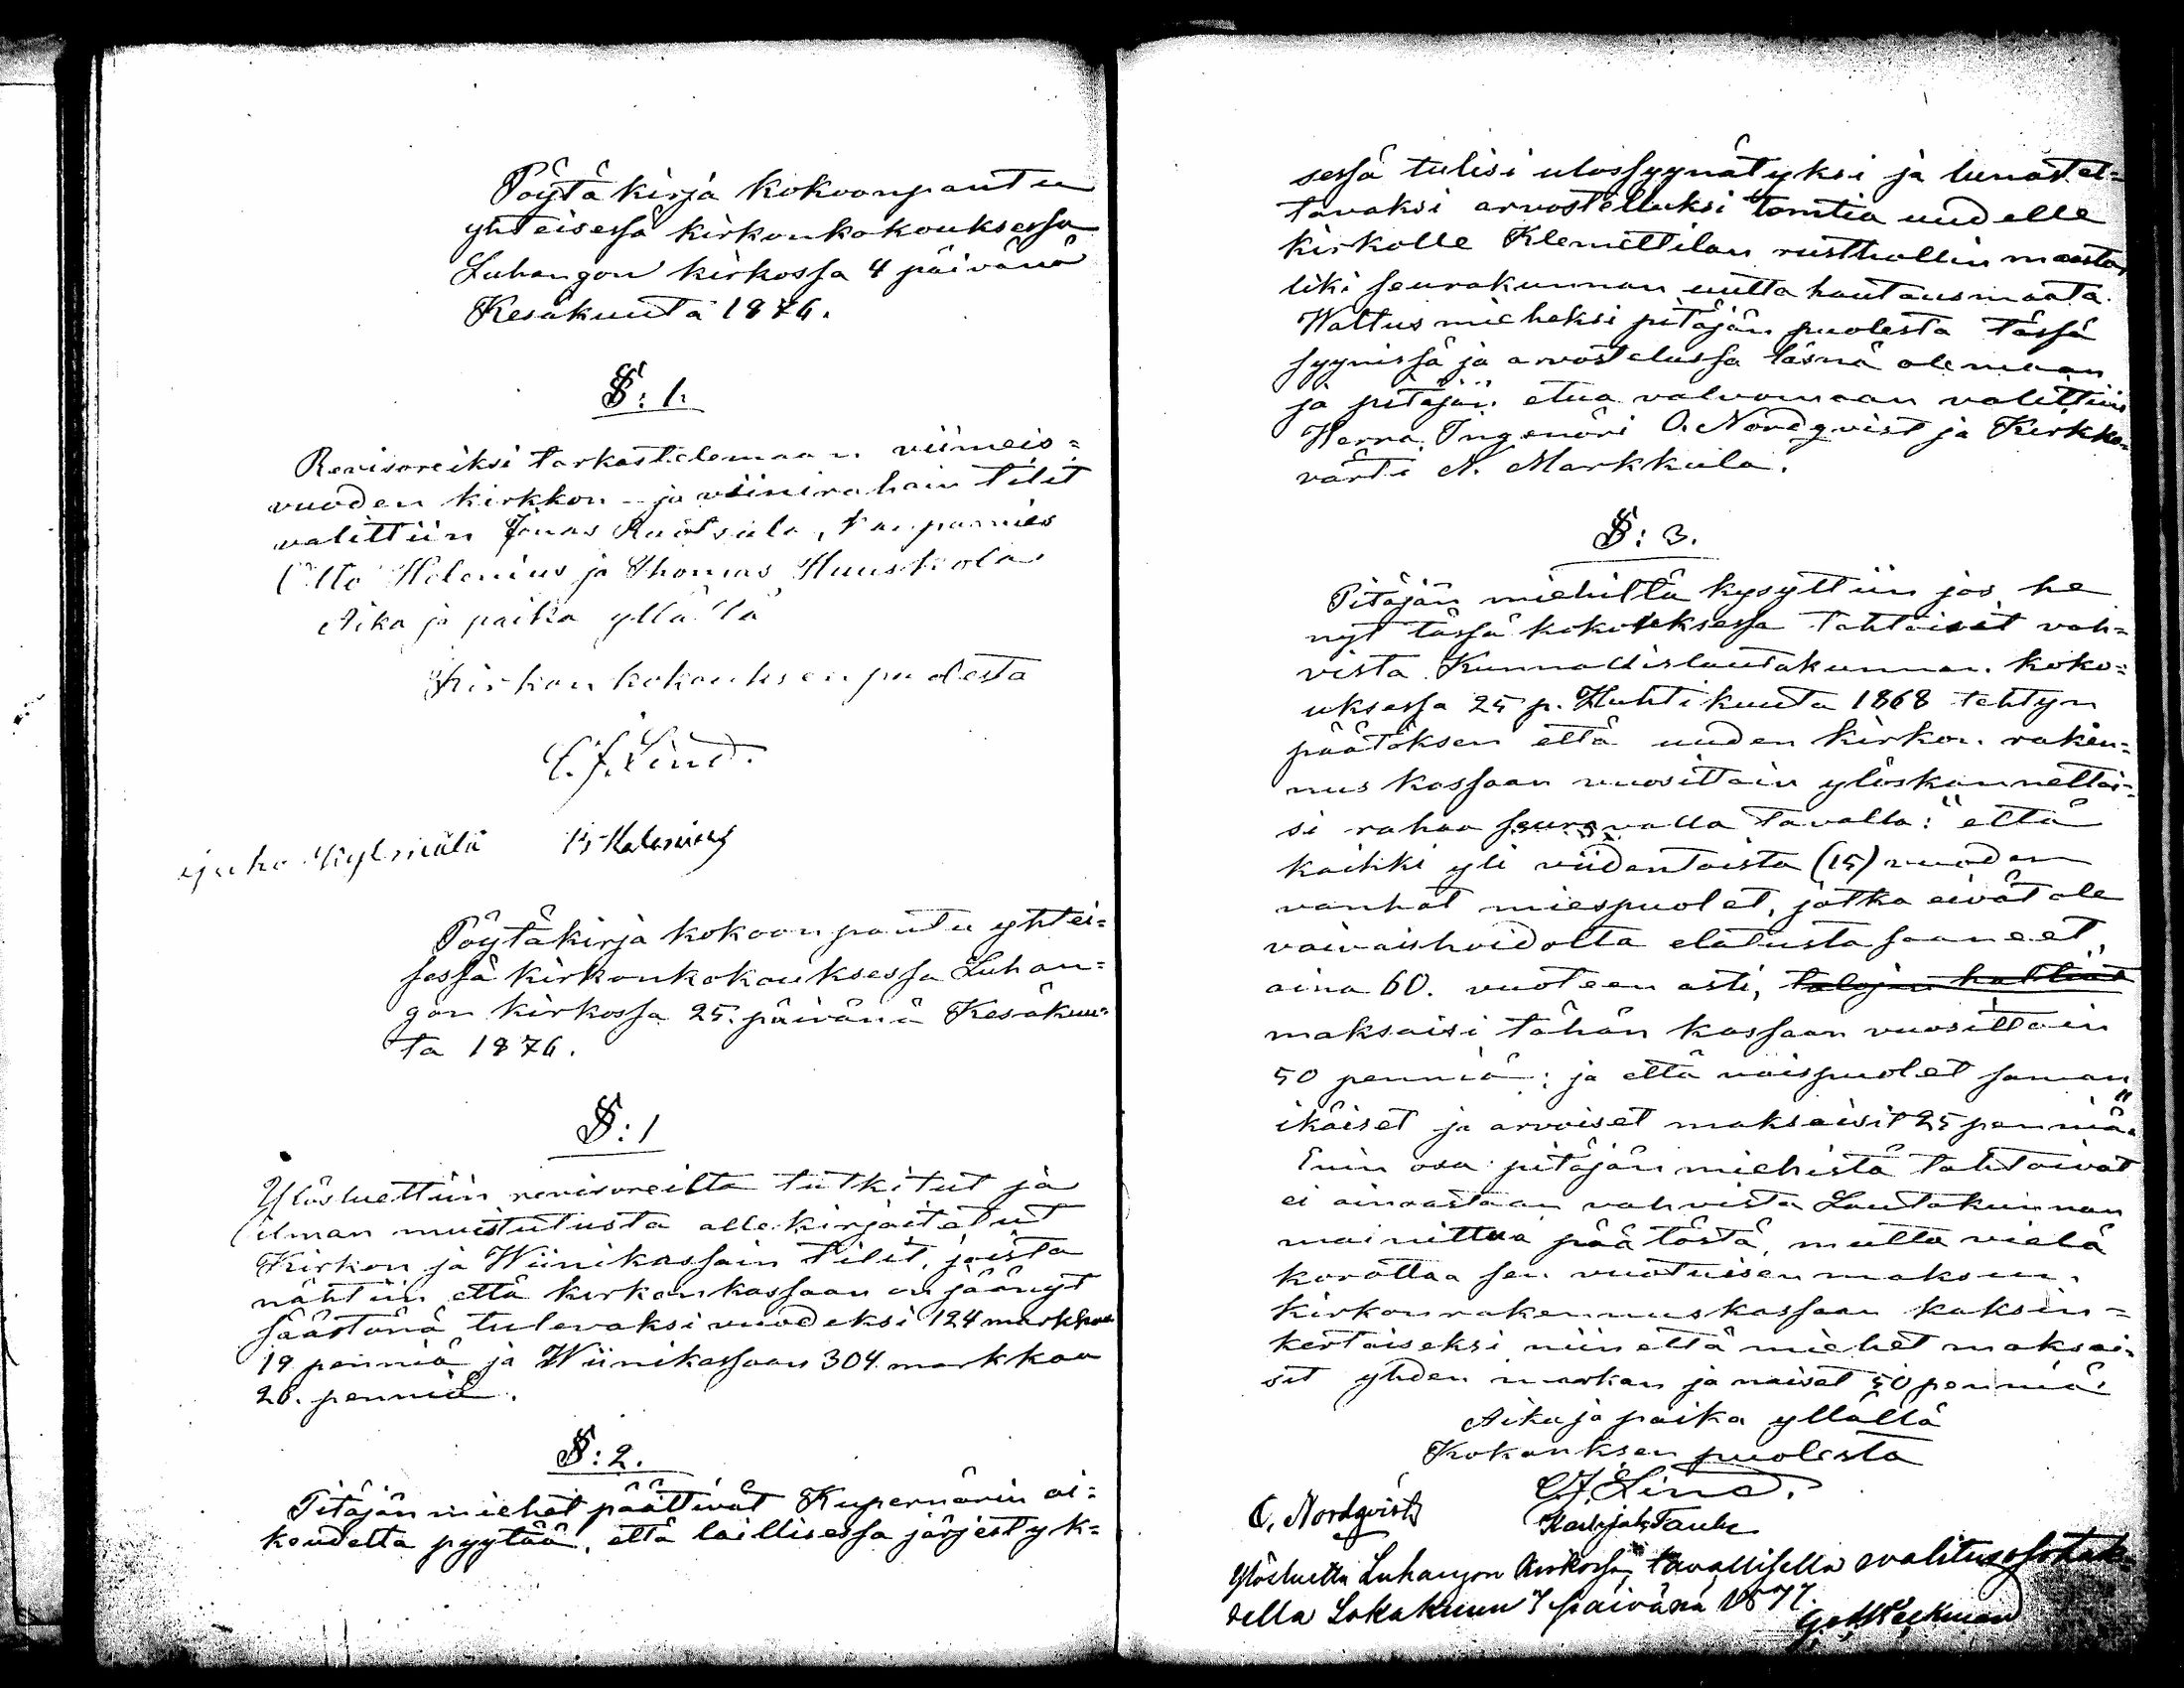 Pöytäkirja kokoonpantu
yhteisessä kirkonkokouksessa
Luhangon kirkossa 4 päivänä
Kesäkuuta 1876.
§: 1.
Revisoreiksi tarkastelemaan viimeis=
vuoden kirkkon- ja viinirahain tilit
valittiin Jonas Ruotsula, kauppamies
Otto Helenius ja Thomas Huuskola
Aika ja paika yllällä
Kirkonkokouksen puolesta
C. J. Lind.
Juho Kylmälä
Pöytäkirja kokoonpantu yhtei=
sessä kirkonkokouksessa Luhan=
gon kirkossa 25. päivänä Kesäkuu=
ta 1876.
§: 1
Ylösluettiin revisoreilta tutkitut ja
ilman muistutusta allekirjoitetut
Kirkon ja Wiinikassain tilit, joista
nähtiin että kirkonkassaan on jäänyt
säästönä tulevaksi vuodeksi 124 markkaa
19 penniä ja Wiinikassaan 304 markkaa
26. penniä.
§: 2.
Pitäjän miehet päättivät Kupernörin oi=
keudelta pyytää, että laillisessa järjestyk=
sessä tulisi ulossyynätyksi ja lunastet=
tavaksi arvostelluksi tomtia uudelle
kirkolle Klemettilän rusthollin maasta
liki seurakunnan uutta hautausmaata.
Waltuusmieheksi pitäjän puolesta tässä
syynissä ja arvostelussa läsnä olemaan
ja pitäjän etua valvomaan valittiin
Herra Ingenöri O. Nordqvist ja Kirkko-
värti A. Markkula.
§: 3.
Pitäjän miehiltä kysyttiin jos he
nyt tässä kokouksessa tahtoisit vah=
vista Kunnallislautakunnan koko=
uksessa 25 p. Huhtikuuta 1868 tehtyn
päätöksen että uuden kirkon raken=
nus kassaan vuosittain ylöskannettai=
si rahaa seuravalla tavalla: "että
kaikki yli viidentoista (15) vuoden
vanhat miespuolet, jotka eivät ole
vaivaishoidolta elatusta saaneet,
aina 60. vuoteen asti, talojen haltiat
maksaisi tähän kassaan vuosittain
50 penniä; ja että vaispuolet saman
ikäiset ja arvoiset maksaisit 25 penniä."
Enin osa pitäjän miehistä tahtoivat
ei ainoastaan vahvista Lautakunnan
mainittua päätöstä, mutta vielä
korottaa sen vuotuisen maksun
kirkonrakennuskassaan kaksin=
kertaiseksi niin että miehet maksai=
sit yhden markan ja naiset 50 penniä.
Aika ja paika yllällä
Kokouksen puolesta
C. J. Lind.
O. Nordqvist
Ylösluettu Luhangon kirkossa, tavallisella valitusosotuk-
sella Lokakuun 7 päivänä 1877.